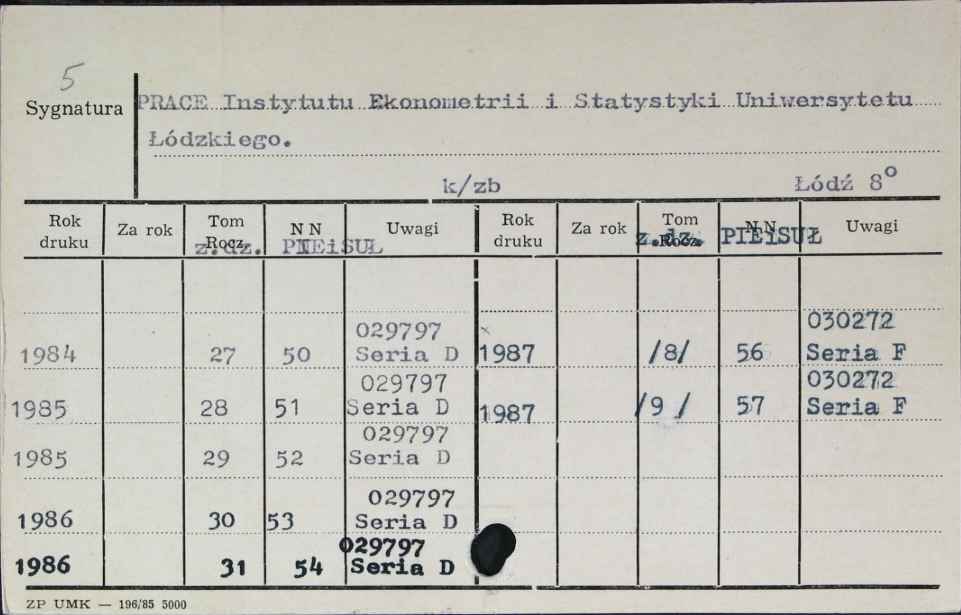 5
Sygnatura PRACE Instytutu Ekonometrii i Statystyki Uniwersytetu
Łódzkiego.
k/zb Łódź 8°
Rok druku Za rok Tom Rocz. NN Uwagi Rok druku Za rok Tom Rocz. NN Uwagi
z.dz. PIEiSUŁ z.dz. PIEiSUŁ
029797 030272
1984 27 50 Seria D 1987 /8/ 56 Seria F
029797 030272
1985 28 51 Seria D 1987 /9 / 57 Seria F
029797
1985 29 52 Seria D
029797
1986 30 53 Seria D
029797
1986 31 54 Seria D
ZP UMK — 196/85 5000